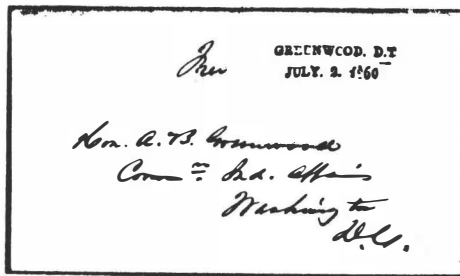 Free
GREENWOOD. D.T
JULY. 2. 1860
Hon. A. B. Greenwood
Comm<sup>r</sup> Ind. Affairs
Washington
D.C.